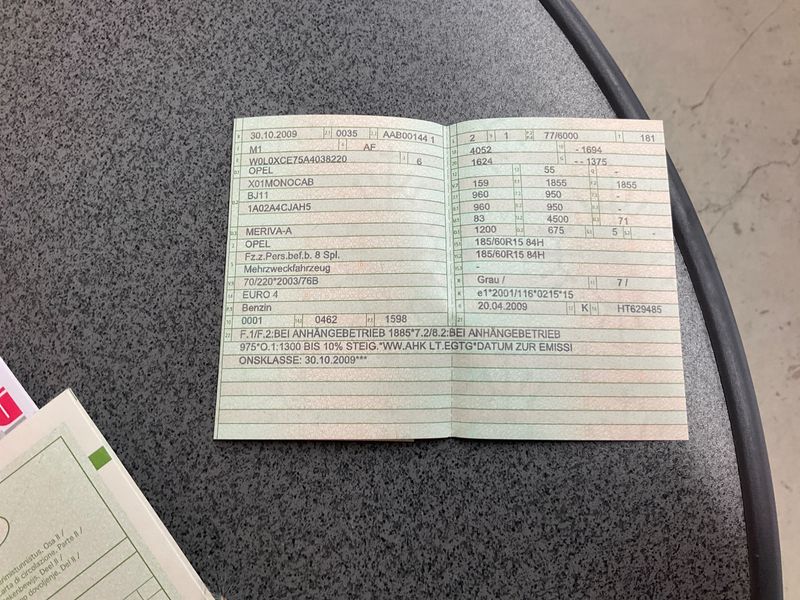 30.10.2009 0035 AAB00144 1
M1 AF
W0L0XCE75A4038220 6
OPEL
X01MONOCAB
BJ11
1A02A4CJAH5
MERIVA-A
OPEL
Fz.z.Pers.bef.b. 8 Spl.
Mehrzweckfahrzeug
70/220*2003/76B
EURO 4
Benzin
0001 0462 1598
2 1 77/6000 181
4052 - 1694
1624 - - 1375
- 55 -
159 1855 1855
960 950 -
960 950 -
83 4500 71
1200 675 5 -
185/60R15 84H
185/60R15 84H
-
Grau / 7 /
e1*2001/116*0215*15
20.04.2009 K HT629485
F.1/F.2:BEI ANHÄNGEBETRIEB 1885*7.2/8.2:BEI ANHÄNGEBETRIEB
975*O.1:1300 BIS 10% STEIG.*WW.AHK LT.EGTG*DATUM ZUR EMISSI
ONSKLASSE: 30.10.2009***
dovoljenje. Del II /